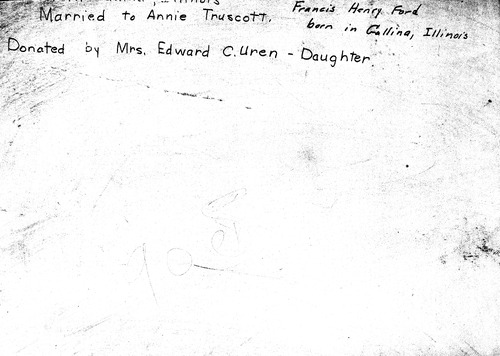 Illinois
Married to Annie Truscott.
Francis Henry Ford
born in Gallina, Illinois
Donated by Mrs. Edward C. Uren - Daughter.